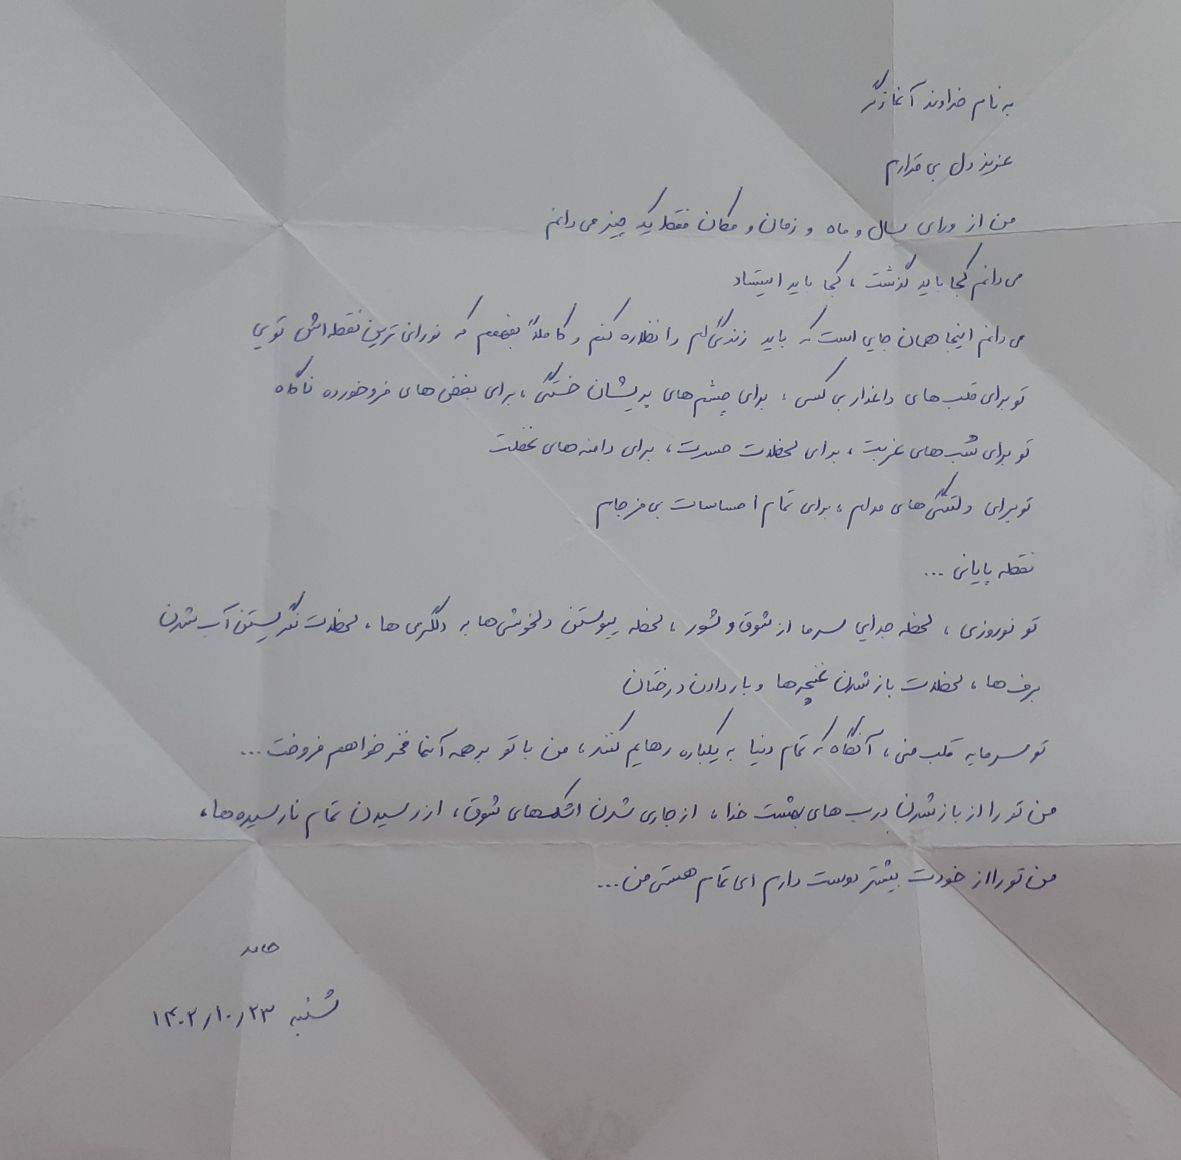 به نام خداوند آغازگر
عزیز دل بی قرارم
من از ورای سال و ماه و زمان و مکان فقط یک چیز می دانم
می دانم کجا باید گذشت ، کجا باید ایستاد
می دانم اینجا همان جایی است که باید زندگی ام را نظاره کنم و کاملاً بفهمم که نورانی ترین نقطه اش تویی
تو برای قلب های داغدار بی کسی ، برای چشم های پریشان خستگی ، برای بغض های فروخورده ناگاه
تو برای شب های غربت ، برای لحظات حسرت ، برای دامنه های غفلت
تو برای دلتنگی های مدام ، برای تمام احساسات بی فرجام
نقطه پایانی ...
تو نوروزی ، لحظه جدایی سرما از شوق و شور ، لحظه پیوستن دلخوشی ها به دلگرمی ها ، لحظات نگریستن آب شدن
برف ها ، لحظات باز شدن غنچه ها و بار دادن درختان
تو سرمایه قلب منی ، آنگاه که تمام دنیا به یکباره رهایم کنند ، من با تو بر همه آنها فخر خواهم فروخت ...
من تو را از باز شدن درب های بهشت خدا ، از جاری شدن اشک های شوق ، از رسیدن تمام نارسیده ها ،
من تو را از خودت بیشتر دوست دارم ای تمام هستی من ...
حامد
شنبه ۱۴۰۲/۱۰/۲۳